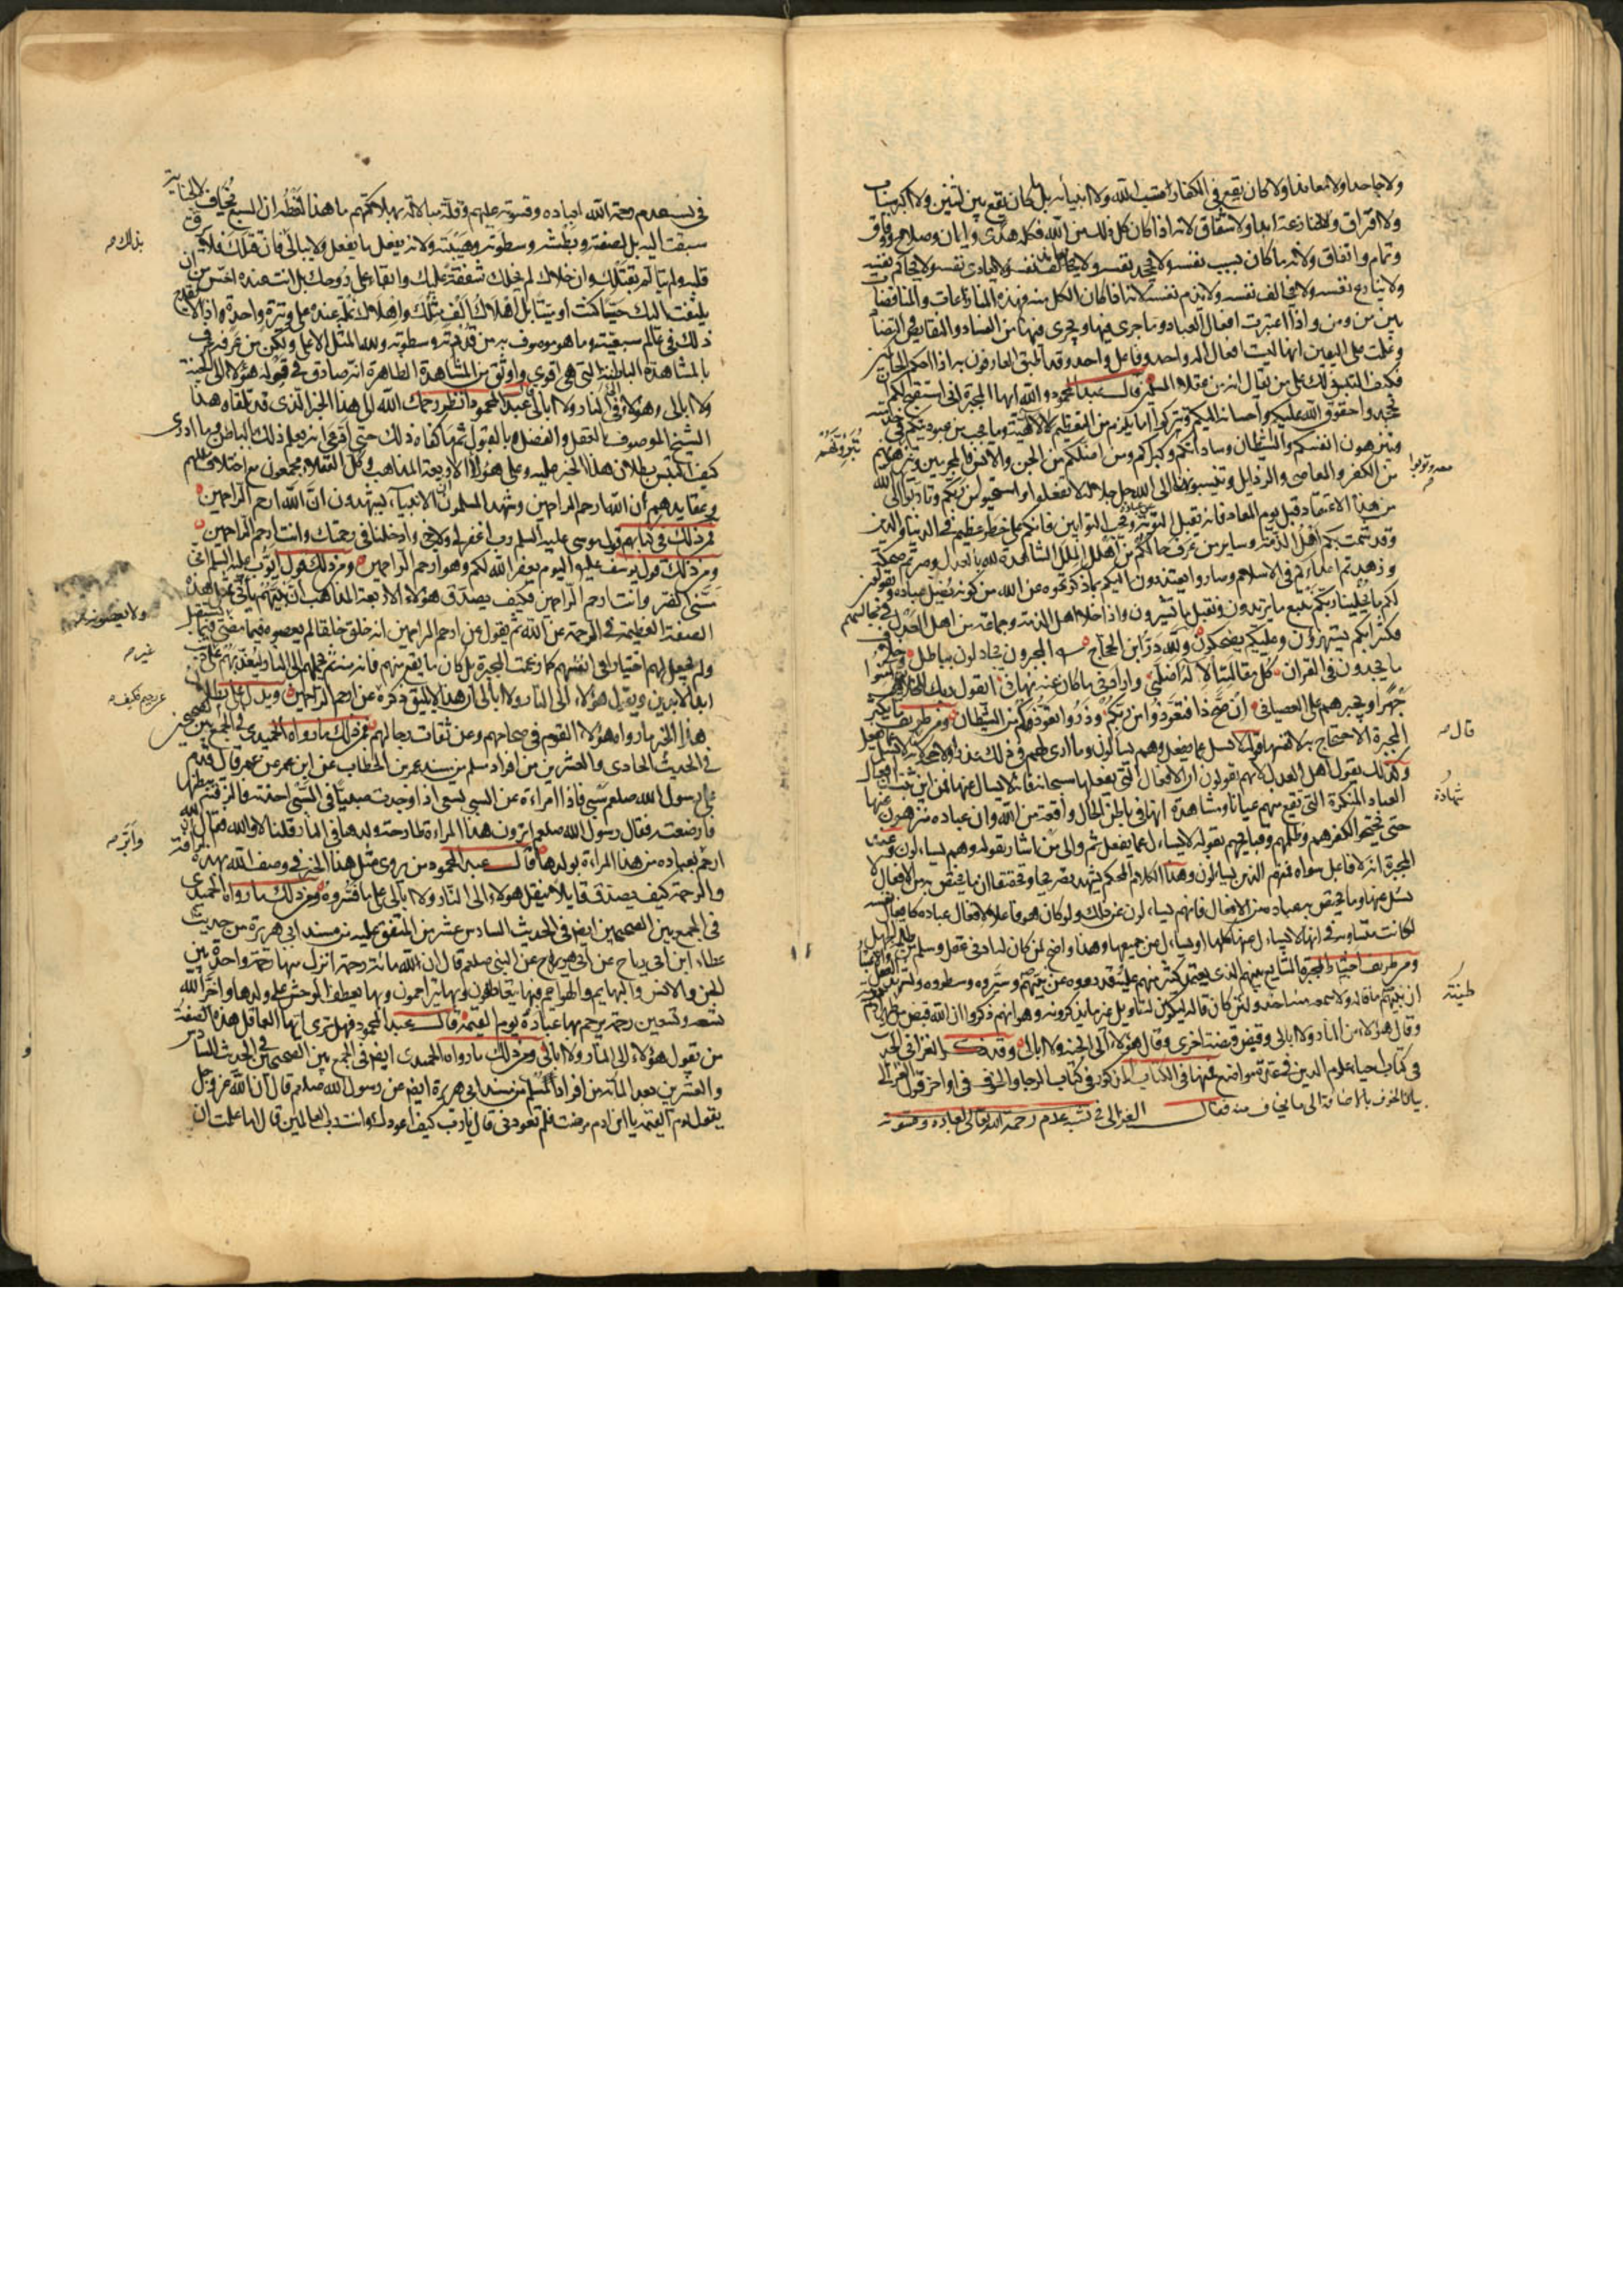 ولا جاحدا ولا معاندا ولا كان يقع في الكفار من سب الله ولا انبيائه بل ما كان يقع بين اثنين ولا اكثر سباب
ولا افتراق ولا منازعة ابدا ولا شقاق لانه اذا كان كل ذلك من الله فكله هدى وايمان وصلاح ووفاق
وتمام واتفاق ولانه ما كان يسب نفسه ولا يجحد نفسه ولا يخالف نفسه ولا يعادى نفسه ولا يحاكم نفسه
ولا ينازع نفسه ولا يخالف نفسه ولا يذم نفسه لانه اذا كان الكل منه فهذه المنازعات والمناقضات
بين من ومن واذا اعتبرت افعال العباد وما جرى فيها ويجرى فيها من الفساد والنقايص والتضاد
وعلمت على اليقين انها ليست افعال اله واحد وفاعل واحد وقد اطبق العارفون
المجبرة انى استقبح لكم
تجحدوا حقوق الله عليكم واحسانه اليكم وتتركوا ما يلزم من التعظيم لكمال الالهية وما يجب من عبوديتكم
وتنزهون انفسكم والشيطان وساداتكم وكبراءكم ومن اضلكم من الجن والانس
من الكفر والمعاصى والرذايل وتنسبونها الى الله جل جلاله لا تفعلوا واستحيوا من ربكم وتادبوا
من هذا الاعتقاد قبل يوم المعاد فانه يقبل التوبة ويحب التوابين فانكم على خطر عظيم في الدنيا والدين
وقد شمت بكم اهل الذمة وساير من عرف حالكم من اهل الملل
وزهدتم اعداءكم في الاسلام وصاروا يعتذرون اليكم بما ذكرتموه عن الله من كونه يضل عباده
لكم ما يخلينا ربكم نتبع ما يريدون ونقبل ما تشيرون واذا خلا اهل الذمة وجماعة من اهل العدل في مجالسهم
فكثر بكم يستهزؤن وعليكم يضحكون ولله در ابن الحجاج المجبرون يجادلون بباطل وخلاف
ما يجدون في القران كل مقالته الاله اضلنى وارادنى ما كان عنه نهانى ايقول ربك للخلايق امنوا
جهرا ويجبرهم على العصيان ان صح ذا فتعوذوا من ربكم وذروا تعوذكم من الشيطان ومن طريف ما يكثر
المجبرة الاحتجاج به لانفسهم قوله لا يسل عما يفعل وهم يسالون وما ارى لهم في ذلك عذرا
وكذلك يقول اهل العدل لانهم يقولون ان الافعال التى يفعلها سبحانه لا يسال عنها
العباد المنكرة التى تقع منهم عيانا ومشاهدة انها في باطن الحال واقعة من الله وان عباده منزهون عنها
حتى نحتج لكفرهم وظلمهم وقبايحهم بقوله لا يساءل عما يفعل ثم والى من اشار بقوله وهم يساءلون وعند
المجبرة انه لا فاعل سواه فمن هم الذين يسالون وهذا الكلام المحكم يشهد تصريحا وتحقيقا ان ما يختص به من الافعال لا
يسئل عنها وما يختص بعباده من الافعال فانهم يساءلون عن ذلك ولو كان هو فاعلا لافعال عباده كافعال نفسه
لكانت متساوية في انها لا يساءل عنها كلها او يساءل عن جميعها وهذا واضح لمن كان له ادنى عقل وسلم
ومن طريف المجبرة الشايع بينهم الذى يعتمد كثير منهم عليه وقد رووه عن نبيهم وستروه وسطروه
ان نبيهم ما قاله ولا سمعه منه احد ولئن كان قاله ليكون له تاويل غير ما يذكرونه وهو انهم ذكروا ان الله قبض من ظهر ادم
وقال هؤلاء من النار ولا ابالى وقبض قبضة اخرى وقال هؤلاء الى الجنة ولا ابالى وقد ذكر الغزالى
في كتاب احياء علوم الدين في عدة مواضع فمنها في الكتاب المذكور في كتاب الرجا والخوف في اواخر قول الغزالى
بيان الخوف بالاضافة الى ما يخاف منه فقال الغزالى في سبب عدم رحمة الله تعالى لعباده وقسوته
تبرؤنهم
قال
شهادة
طينته
في سبب عدم رحمة الله لعباده وقسوته عليهم وقلة مبالاته بهلاكهم ما هذا لفظه ان السبع يخاف لا لجناية
سبقت اليه بل لصفته وبطشه وسطوته وهيبته ولانه يفعل ما يفعل ولا يبالى فان قتلك لم يرق
قلبه ولم يتالم بقتلك وان خلاك لم يخلك شفقة عليك وابقاء على روحك بل انت عنده اخس من ان
يلتفت اليك حيا كنت او ميتا بل اهلاك الف مثلك واهلاك نملة عنده على وتيرة واحدة
ذلك في عالم سبعيته وما هو موصوف به من قدرته وسطوته ولله المثل الاعلى ولكن من عرفه عرف
بالمشاهدة الباطنة التى هى اقوى واوثق من المشاهدة الظاهرة انه صادق في قوله هؤلاء الى الجنة
ولا ابالى وهؤلاء الى النار ولا ابالى عبد المحمود انظر رحمك الله الى هذا الخبر الذى قد تلقاه هذا
الشيخ الموصوف بالعقل والفضل بالقبول ثم ما كفاه ذلك حتى ادعى انه يعلم ذلك بالباطن وما ادرى
كيف التبس بطلان هذا الخبر عليه وعلى هؤلاء الاربعة المذاهب وكل العقلاء مجمعون مع اختلاف مللهم
وعقايدهم ان الله ارحم الراحمين وشهد المسلمون ان الانبياء يشهدون ان الله ارحم الراحمين
فمن ذلك في كتابهم قول موسى عليه السلم رب اغفر لى ولاخى وادخلنا في رحمتك وانت ارحم الراحمين
ومن ذلك قول يوسف عليكم اليوم يغفر الله لكم وهو ارحم الراحمين ومن ذلك قول ايوب عليه السلم انى
مسنى الضر وانت ارحم الراحمين فكيف يصدق هؤلاء الاربعة المذاهب ان نبيهم ياتى بمثل هذه
الصفة العظيمة في الرحمة عن الله ثم يقول عن ارحم الراحمين انه خلق خلقا لم يعصوه فيما مضى
ولم يجعل لهم اختيارا في انفسهم كما زعمت المجبرة بل كان ما يقع منهم فانه منه ثم يحملهم الى النار ليعذبهم
ابد الابدين ويقول هؤلاء الى النار ولا ابالى ان هذا لا يليق ذكره عن ارحم الراحمين ويدل على بطلان
هذا الخبر ما رواه هؤلاء القوم في صحاحهم وعن ثقات رجالهم فمن ذلك ما رواه الحميدى في الجمع بين الصحيحين
في الحديث الحادى والعشرين من افراد مسلم من مسند عمر بن الخطاب عن ابن عمر عن عمر قال قدم
على رسول الله صلعم سبى فاذا امراءة عن السبى تسعى اذا وجدت صبيا في السبى اخذته فالزقته ببطنها
فارضعته فقال رسول الله صلعم اترون هذه المراءة طارحة ولدها في النار قلنا لا والله فقال الله
ارحم بعباده من هذه المراءة بولدها قال عبد المحمود من يروى مثل هذا الخبر في وصف الله بهذه الرافة
والرحمة كيف يصدق قايلا يقول هؤلاء الى النار ولا ابالى على ما فسروه ومن ذلك ما رواه الحميدى
في الجمع بين الصحيحين ايضا في الحديث السادس عشر من المتفق عليه من مسند ابى هريرة من حديث
عطاء ابن ابى رباح عن ابى هريرة عن النبى صلعم قال ان لله مائة رحمة انزل منها رحمة واحدة بين
الجن والانس والبهايم والهوام فبها يتعاطفون وبها يتراحمون وبها يعطف الوحش على ولدها واخر الله
تسعه وتسعين رحمة يرحم بها عباده يوم القيمة قال عبد المحمود فهل ترى ايها العاقل هذه الصفة
من يقول هؤلاء الى النار ولا ابالى ومن ذلك ما رواه الحميدى ايضا في الجمع بين الصحيحين في الحديث السادس
والعشرين بعد المائة من افراد مسلم من مسند ابى هريرة ايضا عن رسول الله صلعم قال ان الله عز وجل
يقول يوم القيمة يا ابن ادم مرضت فلم تعودنى قال يا رب كيف اعودك وانت رب العالمين قال اما علمت ان
بذلك
ولا يعصونه
غيره
وابره